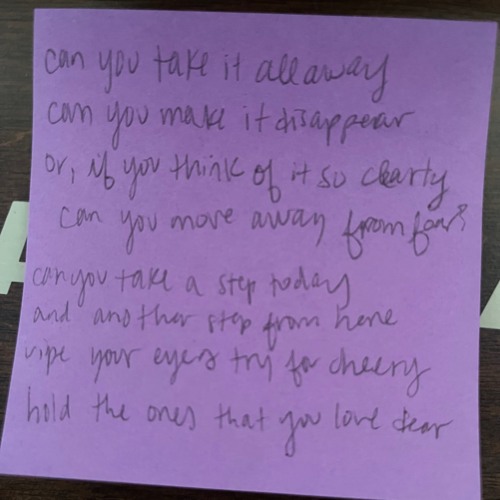 can you take it all away
can you make it disappear
or, if you think of it so clearly
can you move away from fear?
can you take a step today
and another step from here
wipe your eyes try for cheery
hold the ones that you love dear